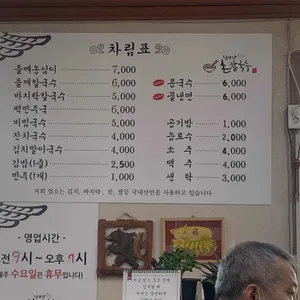 차림표
손칼국수
들깨옹심이 7,000
들깨칼국수 6,000
바지락칼국수 5,000
떡만두국 6,000
비빔국수 5,000
잔치국수 4,000
김치말이국수 4,000
김밥(1줄) 2,500
만두(1개) 1,000
콩국수 6,000
물냉면 6,000
공기밥 1,000
음료수 2,000
소주 4,000
맥주 4,000
생탁 3,000
저희 업소는 김치, 바지락, 콩, 쌀등 국내산만을 사용하고 있습니다
- 영업시간 -
전 9시~오후 9시
매주 수요일은 휴무입니다)